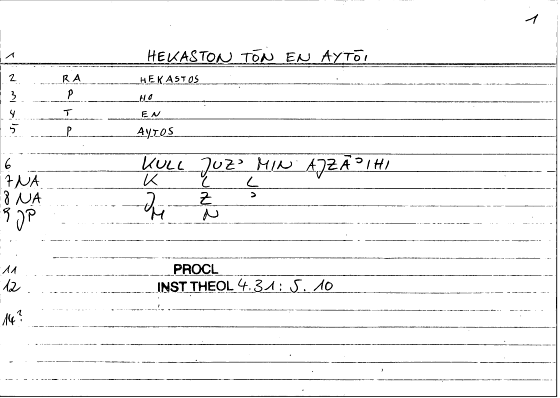 1
1 HEKASTON TŌN EN AYTŌI
2 RA HEKASTOS
3 P HO
4 T EN
5 P AYTOS
6 KULL ǦUZʾ MIN AJZĀʾIHI
7 NA K L L
8 NA Ǧ Z ʾ
9 JP M N
11 PROCL
12 INST THEOL 4.31 : 5.10
14?